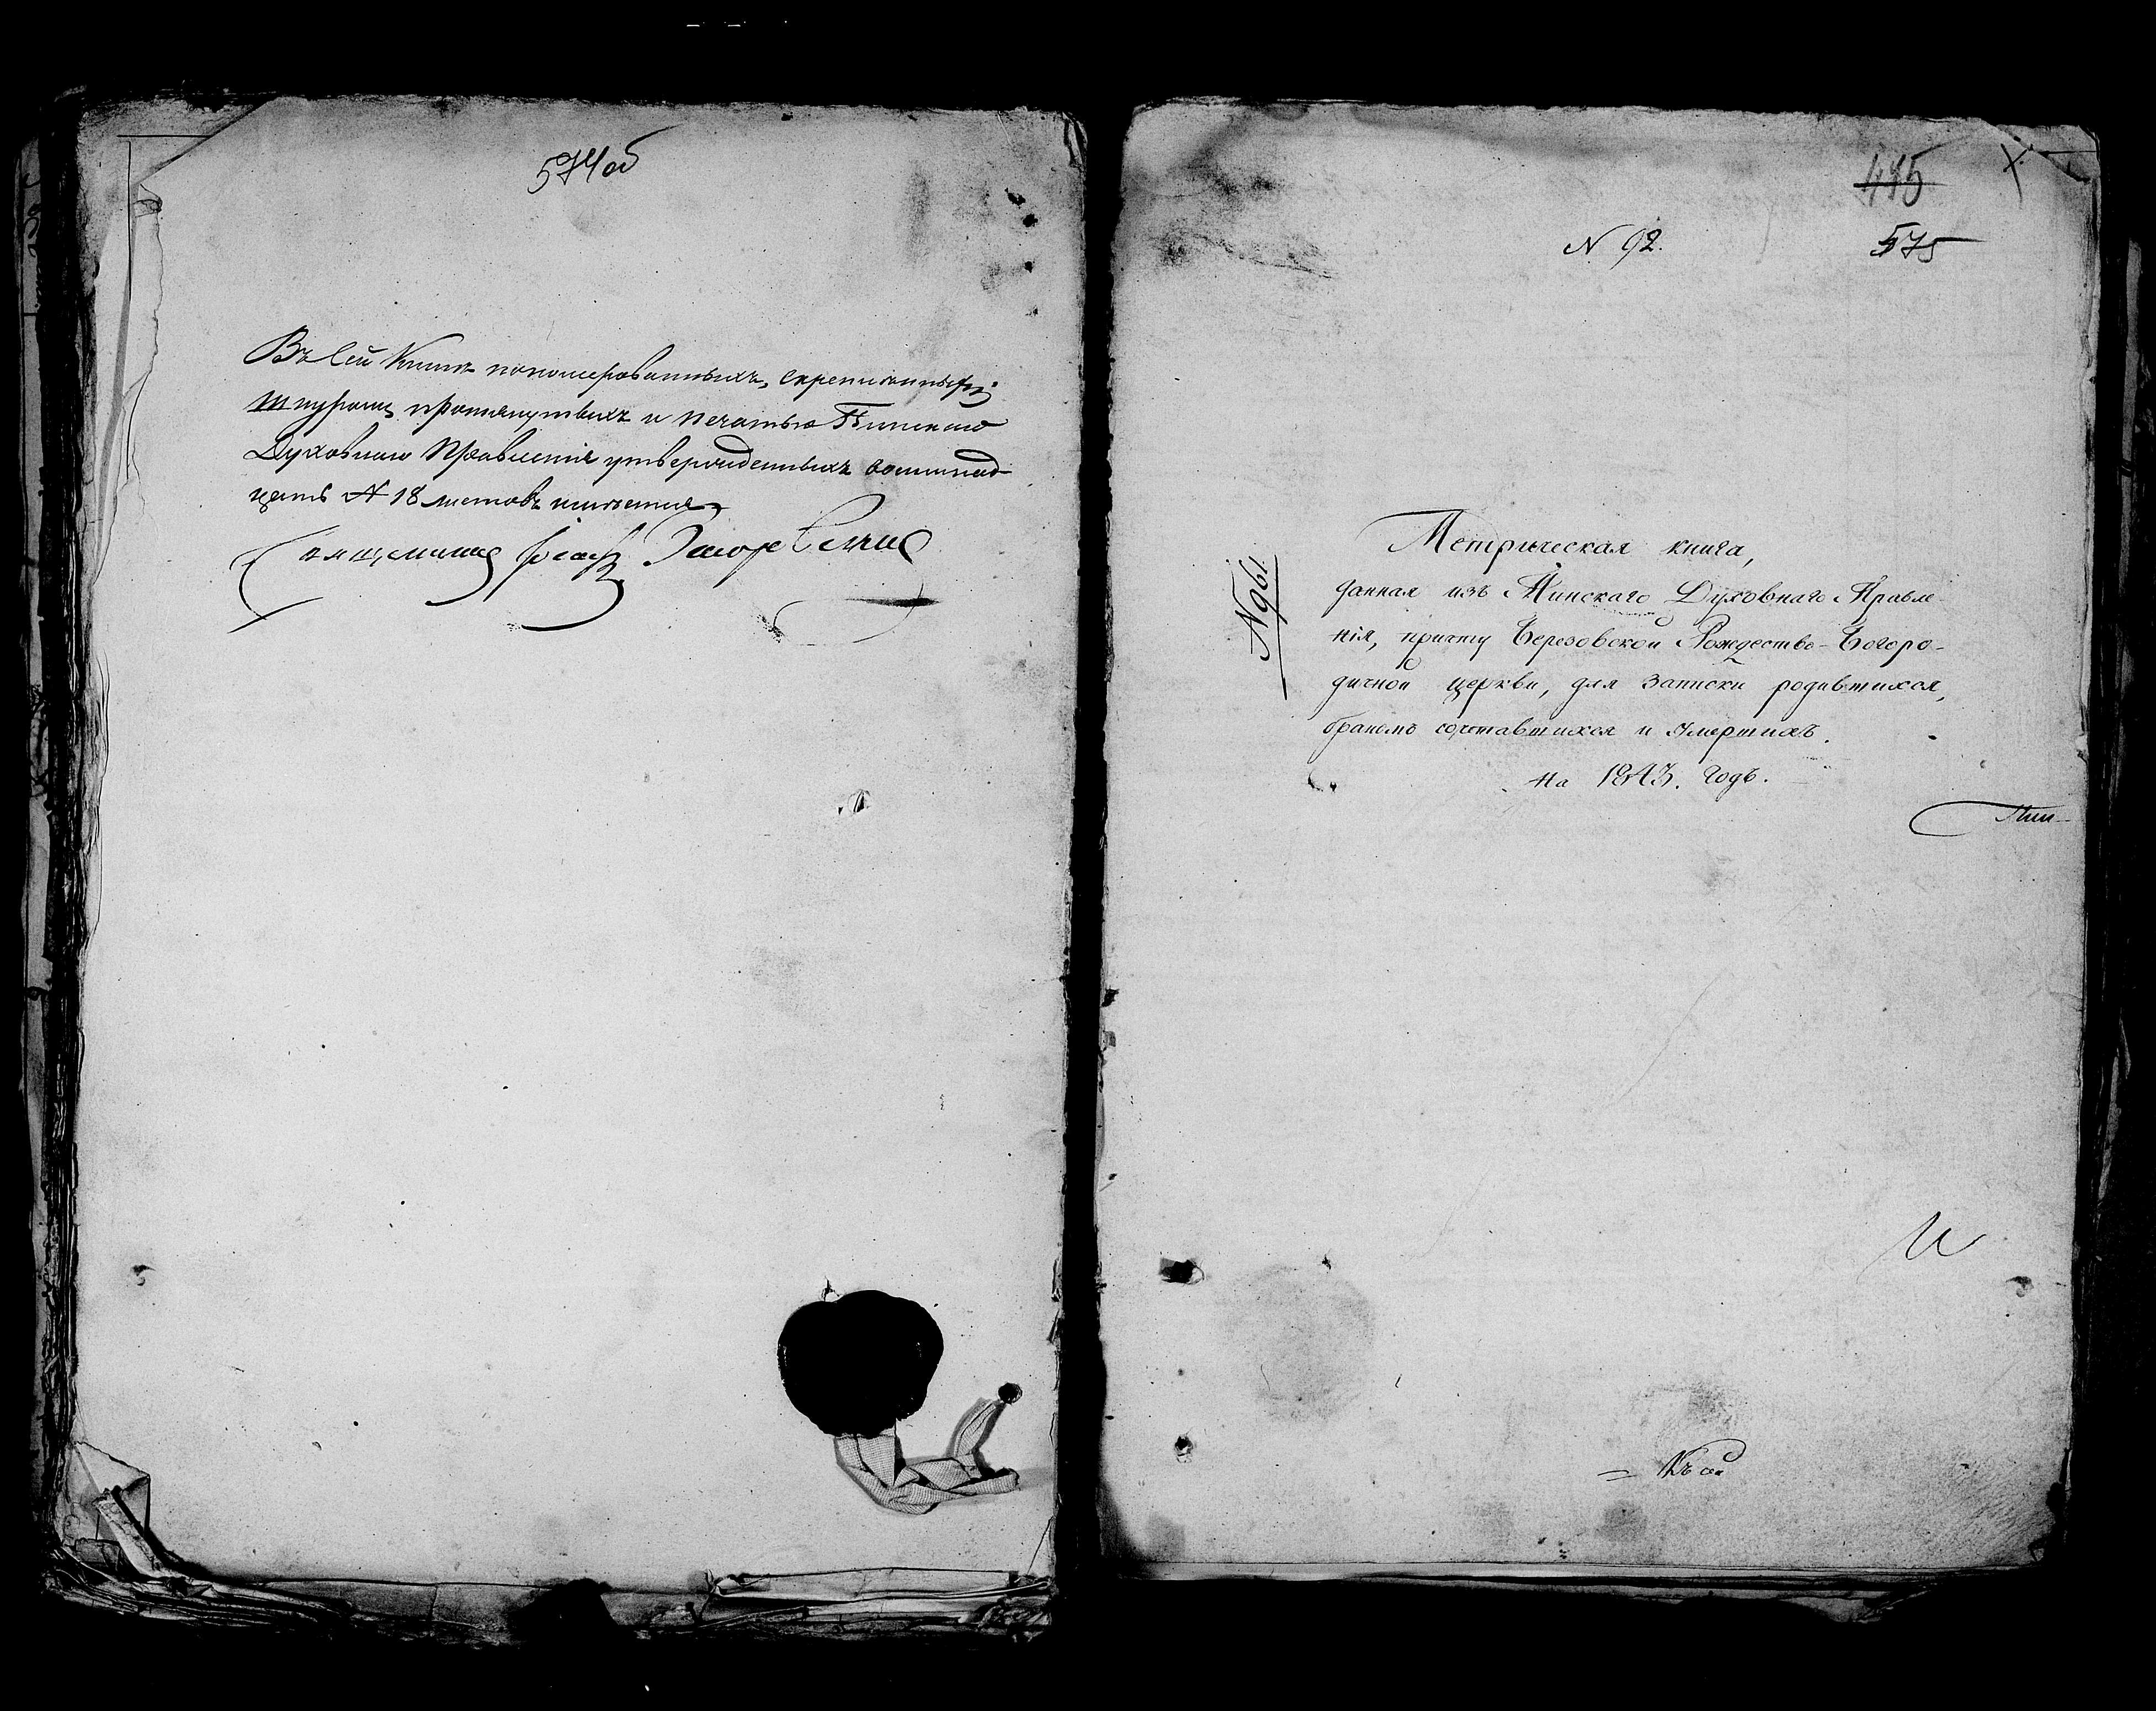 574 об
Въ сей Книге пономерованныхъ, скрепленныхъ,
шнуромъ протянутыхъ и печатью Пинскаго
Духовнаго Правленія утвержденныхъ восемнад-
цать № 18 листовъ имеется,
Священникъ
485
N 92.
575
N 961.
Метрическая книга,
данная изъ Пинскаго Духовнаго Правле-
нія, причту Березовской Рождество-Богоро-
дичной церкви, для записки родившихся,
бракомъ сочетавшихся и умершихъ.
на 1843. годъ.
Пин-